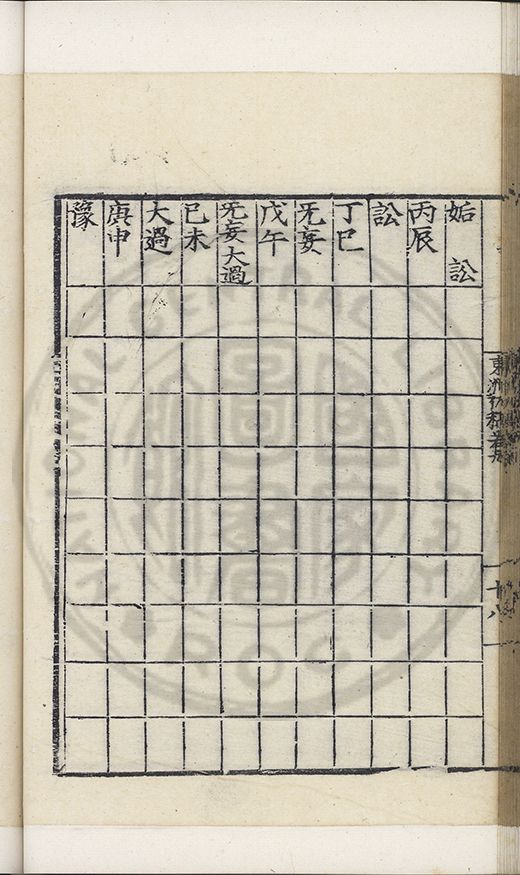 姤　訟
丙辰
訟
丁巳
无妄
戊午
无妄大過
己未
大過
庚申
豫
東洲初稿卷九
十八
NATIONAL CENTRAL LIBRARY